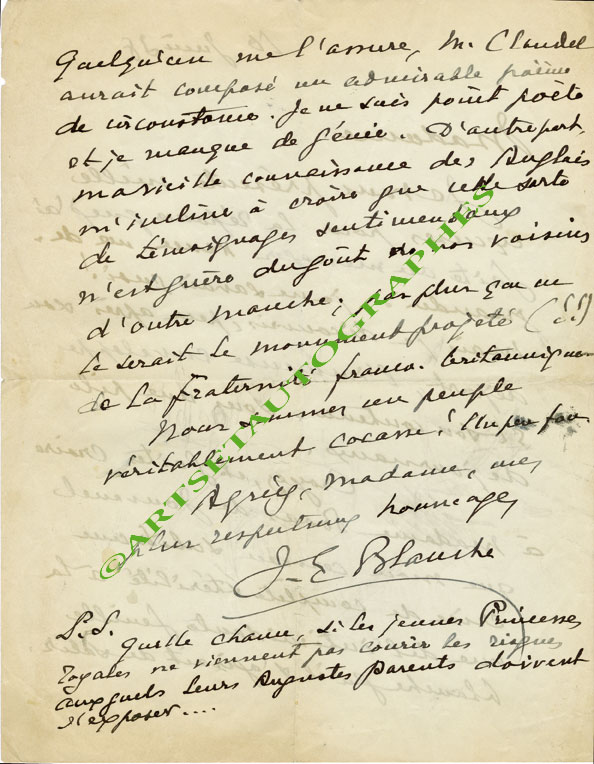 Quelqu'un me l'assure, M. Claudel
aurait composé un admirable poème
de circonstance. Je ne suis point poète
et je manque de génie. D'autre part,
ma vieille connaissance des Anglais
m'incline à croire que cette sorte
de témoignages sentimentaux
n'est guère du goût de nos voisins
d'outre manche; pas plus que ne
le serait le monument projeté (!!)
de la Fraternité franco-britannique
Nous sommes un peuple
véritablement cocasse! Un peu fou
Agréez, madame, mes
plus respectueux hommages
J-E Blanche
P.S. Quelle chance, si les jeunes Princesses
royales ne viennent pas courir les risques
auxquels leurs Augustes Parents doivent
s'exposer....
©ARTSETAUTOGRAPHES